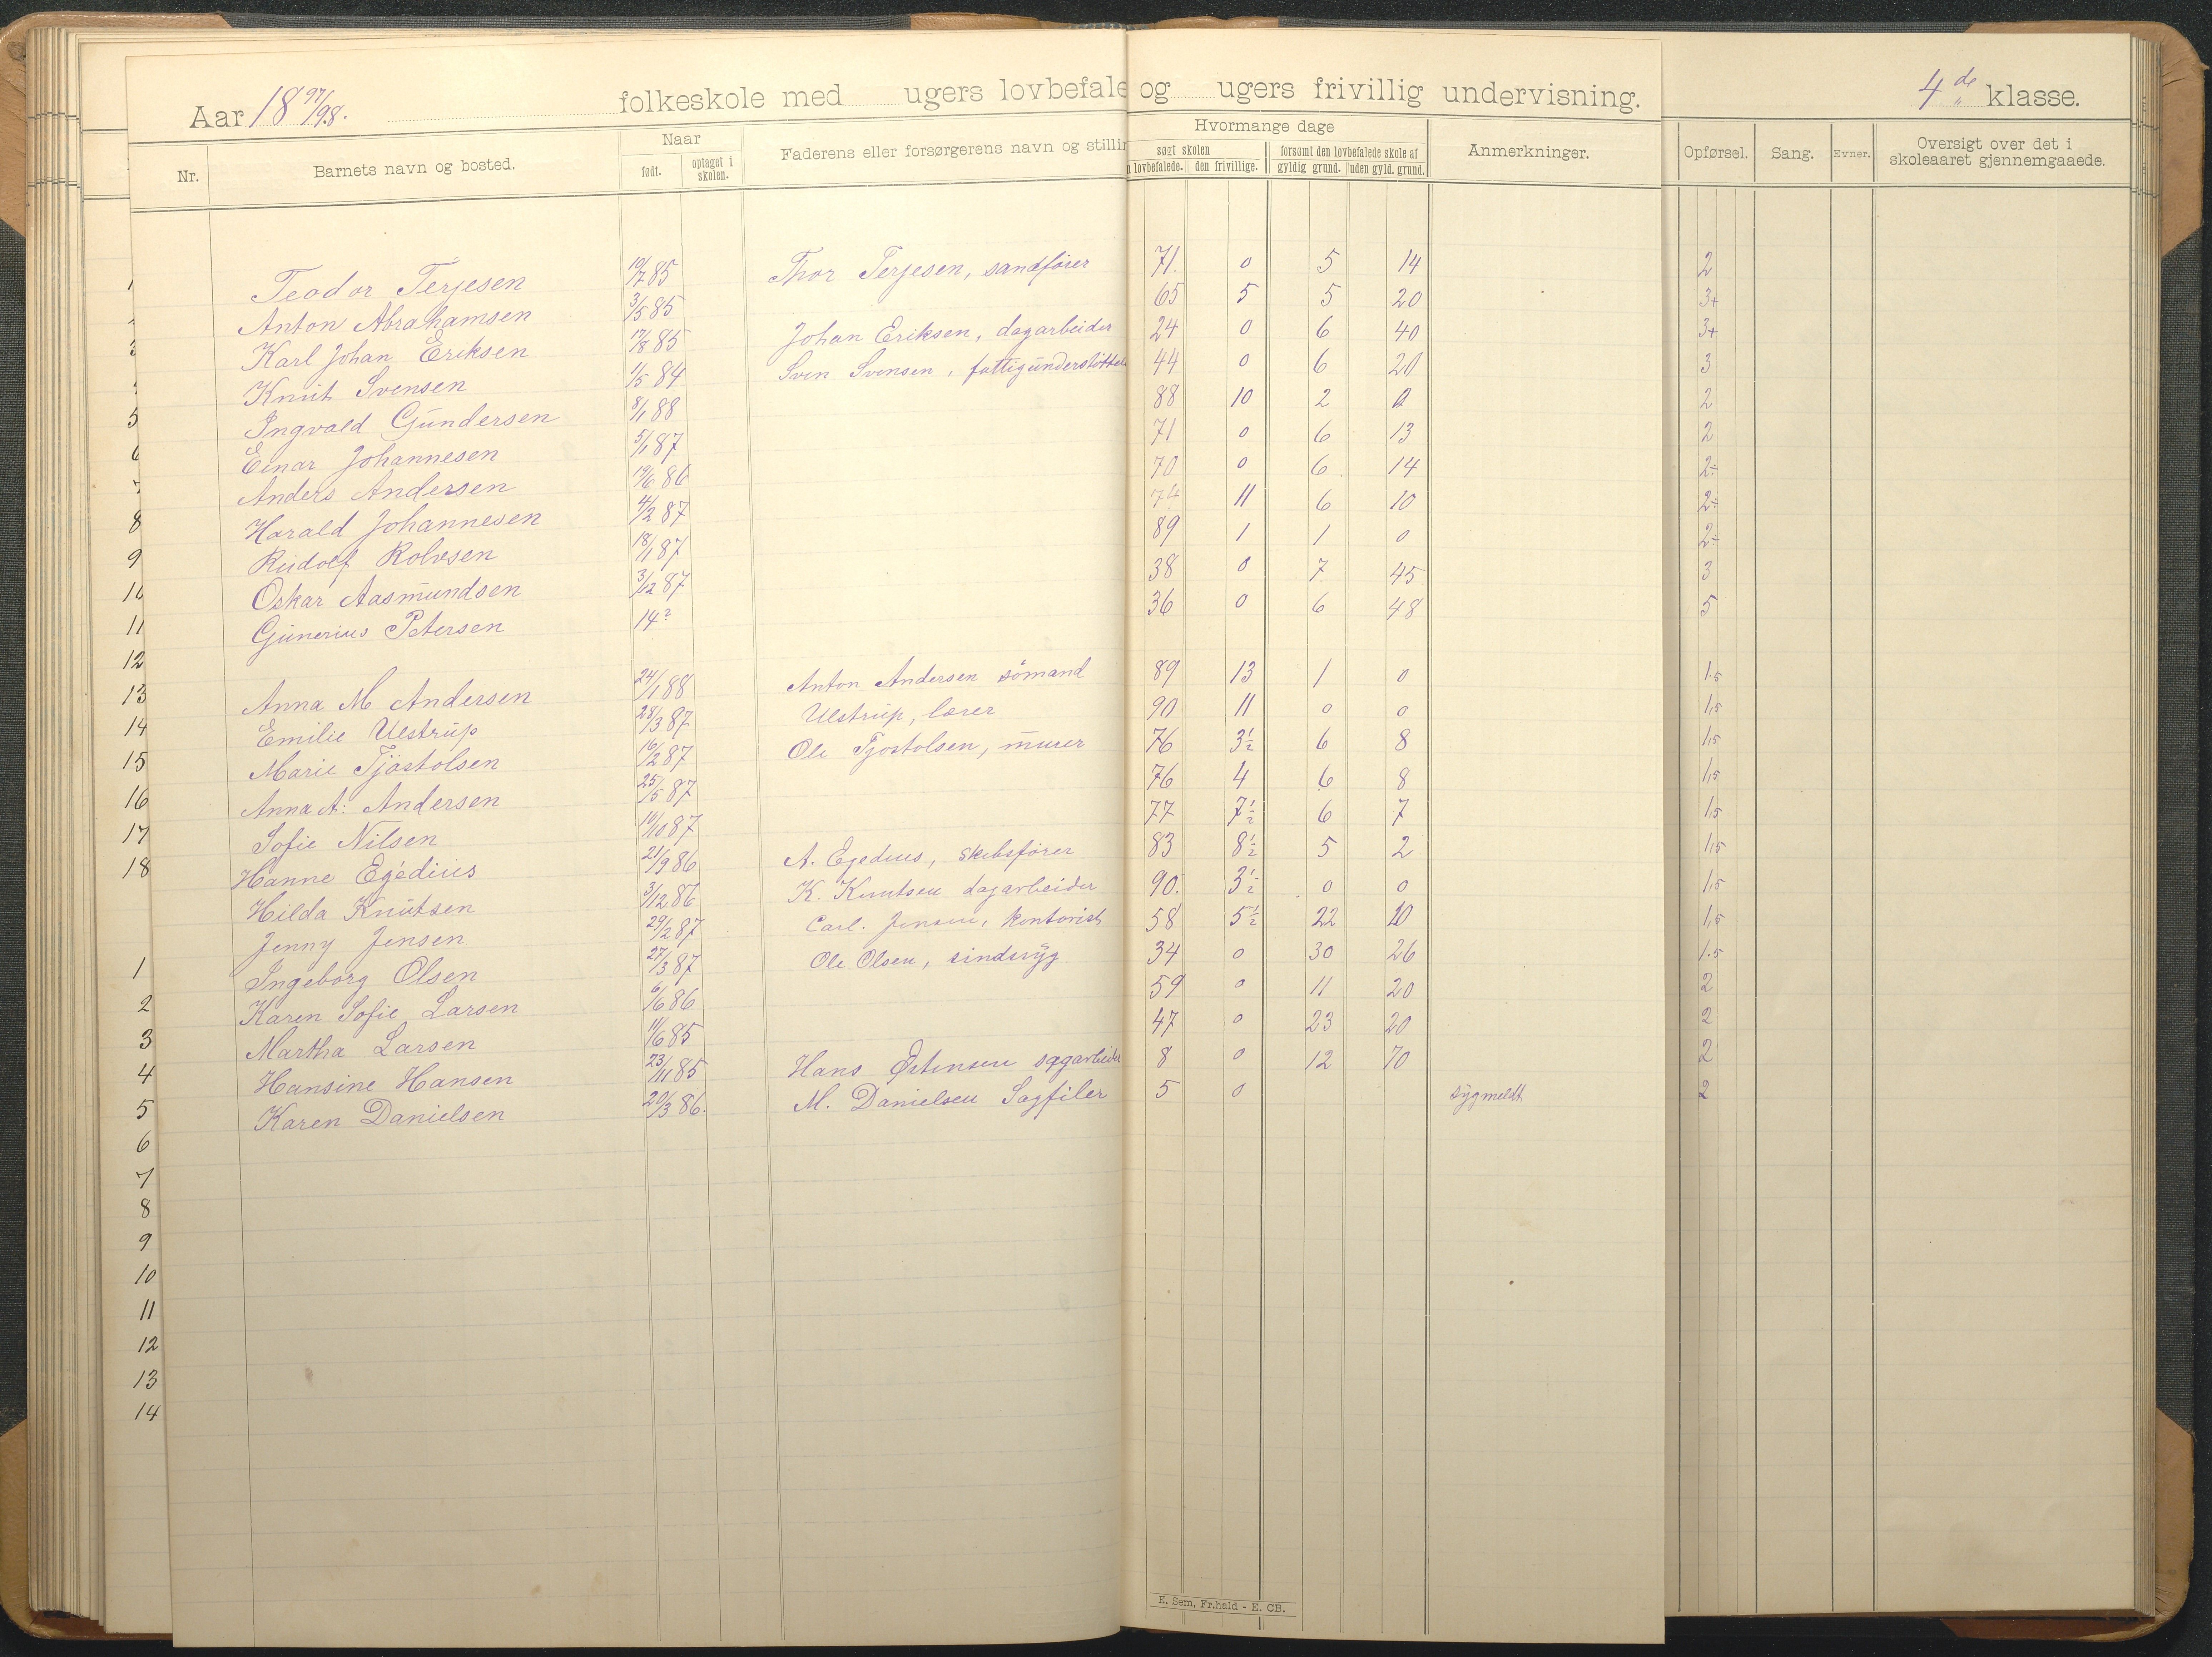 Aar 18 97/98. folkeskole med ugers lovbefale og ugers frivillig undervisning. 4de klasse.
Nr. Barnets navn og bosted. Naar født. optaget i skolen. Faderens eller forsørgerens navn og stillin Hvormange dage søgt skolen n lovbefalede. den frivillige. forsømt den lovbefalede skole af gyldig grund. uden gyld. grund. Anmerkninger. Opførsel. Sang. Evner. Oversigt over det i skoleaaret gjennemgaaede.
1 Teodor Terjesen 19/7 85 Thor Terjesen, sandfører 71. 0 5 14 2
2 Anton Abrahamsen 3/5 85 65 5 5 20 3+
3 Karl Johan Eriksen 17/8 85 Johan Eriksen, dagarbeider 24 0 6 40 3+
Knut Svensen 1/5 84 Sven Svensen, fattigunderstøttet 44 0 6 20 3
5 Ingvald Gundersen 8/1 88 88 10 2 0 2
6 Einar Johannesen 5/1 87 71 0 6 13 2
7 Anders Andersen 19/6 86 70 0 6 14 2÷
8 Harald Johannesen 4/2 87 74 11 6 10 2÷
9 Rudolf Rolvsen 18/1 87 89 1 1 0 2÷
10 Oskar Aasmundsen 3/12 87 38 0 7 45 3
11 Gunerius Petersen 14? 36 0 6 48 5
12
13 Anna M Andersen 24/1 88 Anton Andersen sömand 89 13 1 0 1.5
14 Emilie Ulstrup 28/3 87 Ulstrup, lærer 90 11 0 0 1,5
15 Marie Tjöstolsen 16/2 87 Ole Tjostolsen, murer 76 3½ 6 8 1,5
16 Anna A: Andersen 25/5 87 76 4 6 8 1,5
17 Sofie Nilsen 10/10 87 77 7½ 6 7 1,5
18 Hanne Egédius 21/9 86 A. Egedius, skibsfører 83 8½ 5 2 1,5
Hilda Knutsen 3/12 86 K. Knutsen dagarbeider 90. 3½ 0 0 1,5
Jenny Jensen 29/2 87 Carl. Jensen, kontorist 58 5½ 22 10 1,5
1 Ingeborg Olsen 27/3 87 Ole Olsen, sindssyg 34 0 30 26 1.5
2 Karen Sofie Larsen 6/6 86 59 0 11 20 2
3 Martha Larsen 11/6 85 47 0 23 20 2
4 Hansine Hansen 23/11 85 Hans Østensen sagarbeider 8 0 12 70 2
5 Karen Danielsen 20/3 86. M. Danielsen Sagfiler 5 0 sygmeldt 2
6
7
8
9
10
11
12
13
14
E. Sem, Fr.hald - E. CB.